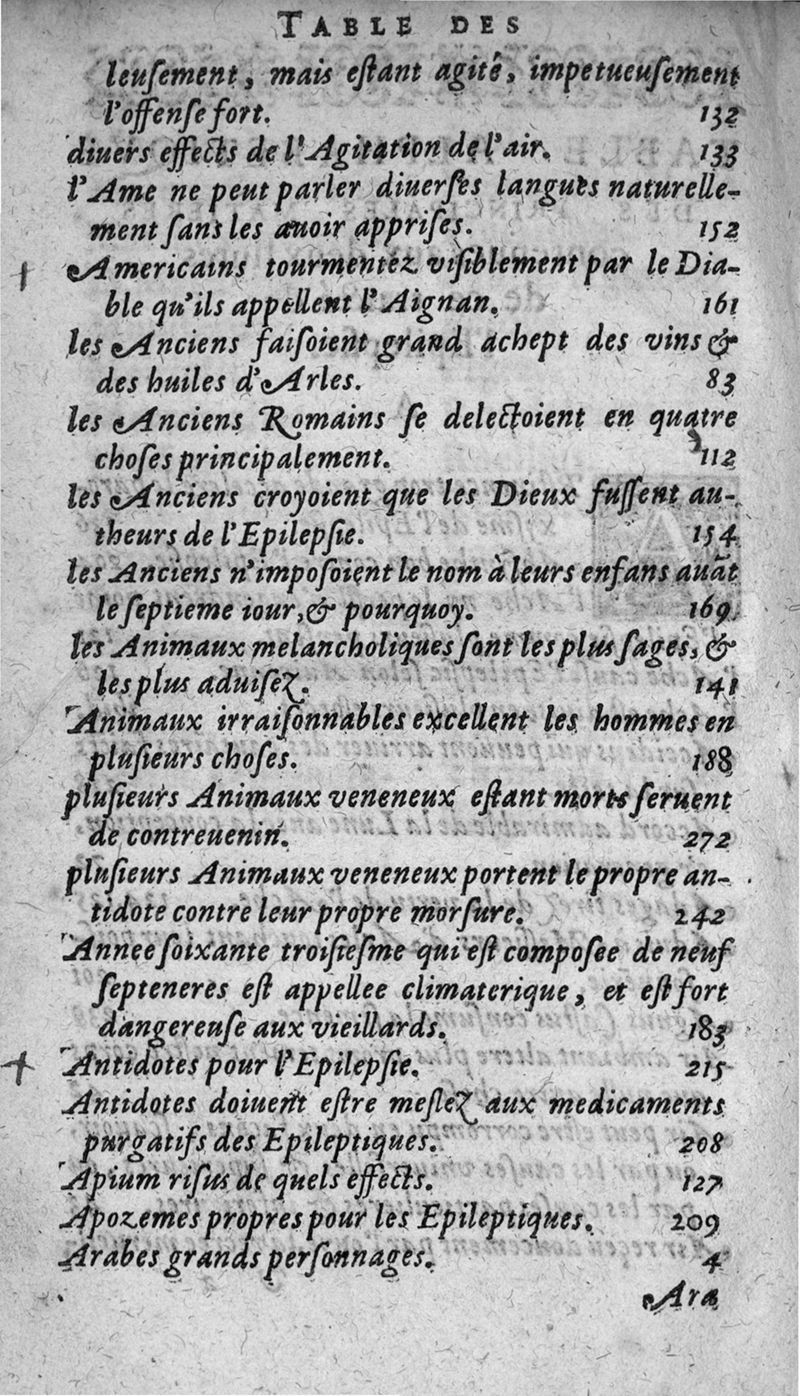 TABLE DES
leuſement, mais eſtant agité, impetueuſement
l'offenſe fort. 132
diuers effects de l'Agitation de l'air. 133
l'Ame ne peut parler diuerſes langues naturelle-
ment ſans les auoir appriſes. 152
† Americains tourmentez viſiblement par le Dia-
ble qu'ils appellent l'Aignan. 161
les Anciens faiſoient grand achept des vins &
des huiles d'Arles. 83
les Anciens Romains ſe delectoient en quatre
choſes principalement. 112
les Anciens croyoient que les Dieux fuſſent au-
theurs de l'Epilepſie. 154
les Anciens n'impoſoient le nom à leurs enfans auãt
le ſeptieme iour, & pourquoy. 169
les Animaux melancholiques ſont les plus ſages, &
les plus aduiſez. 141
Animaux irraiſonnables excellent les hommes en
pluſieurs choſes. 188
pluſieurs Animaux veneneux eſtant morts ſeruent
de contreuenin. 272
pluſieurs Animaux veneneux portent le propre an-
tidote contre leur propre morſure. 242
Annee ſoixante troiſieſme qui eſt compoſee de neuf
ſepteneres eſt appellee climaterique, et eſt fort
dangereuſe aux vieillards. 183
† Antidotes pour l'Epilepſie. 215
Antidotes doiuent eſtre meſlez aux medicaments
purgatifs des Epileptiques. 208
Apium riſus de quels effects. 127
Apozemes propres pour les Epileptiques. 209
Arabes grands perſonnages. 4
Ara